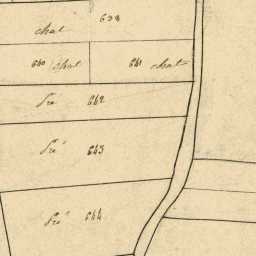 chat 638
640 chat 641 chat
Pré 642
Pré 643
Pré 644